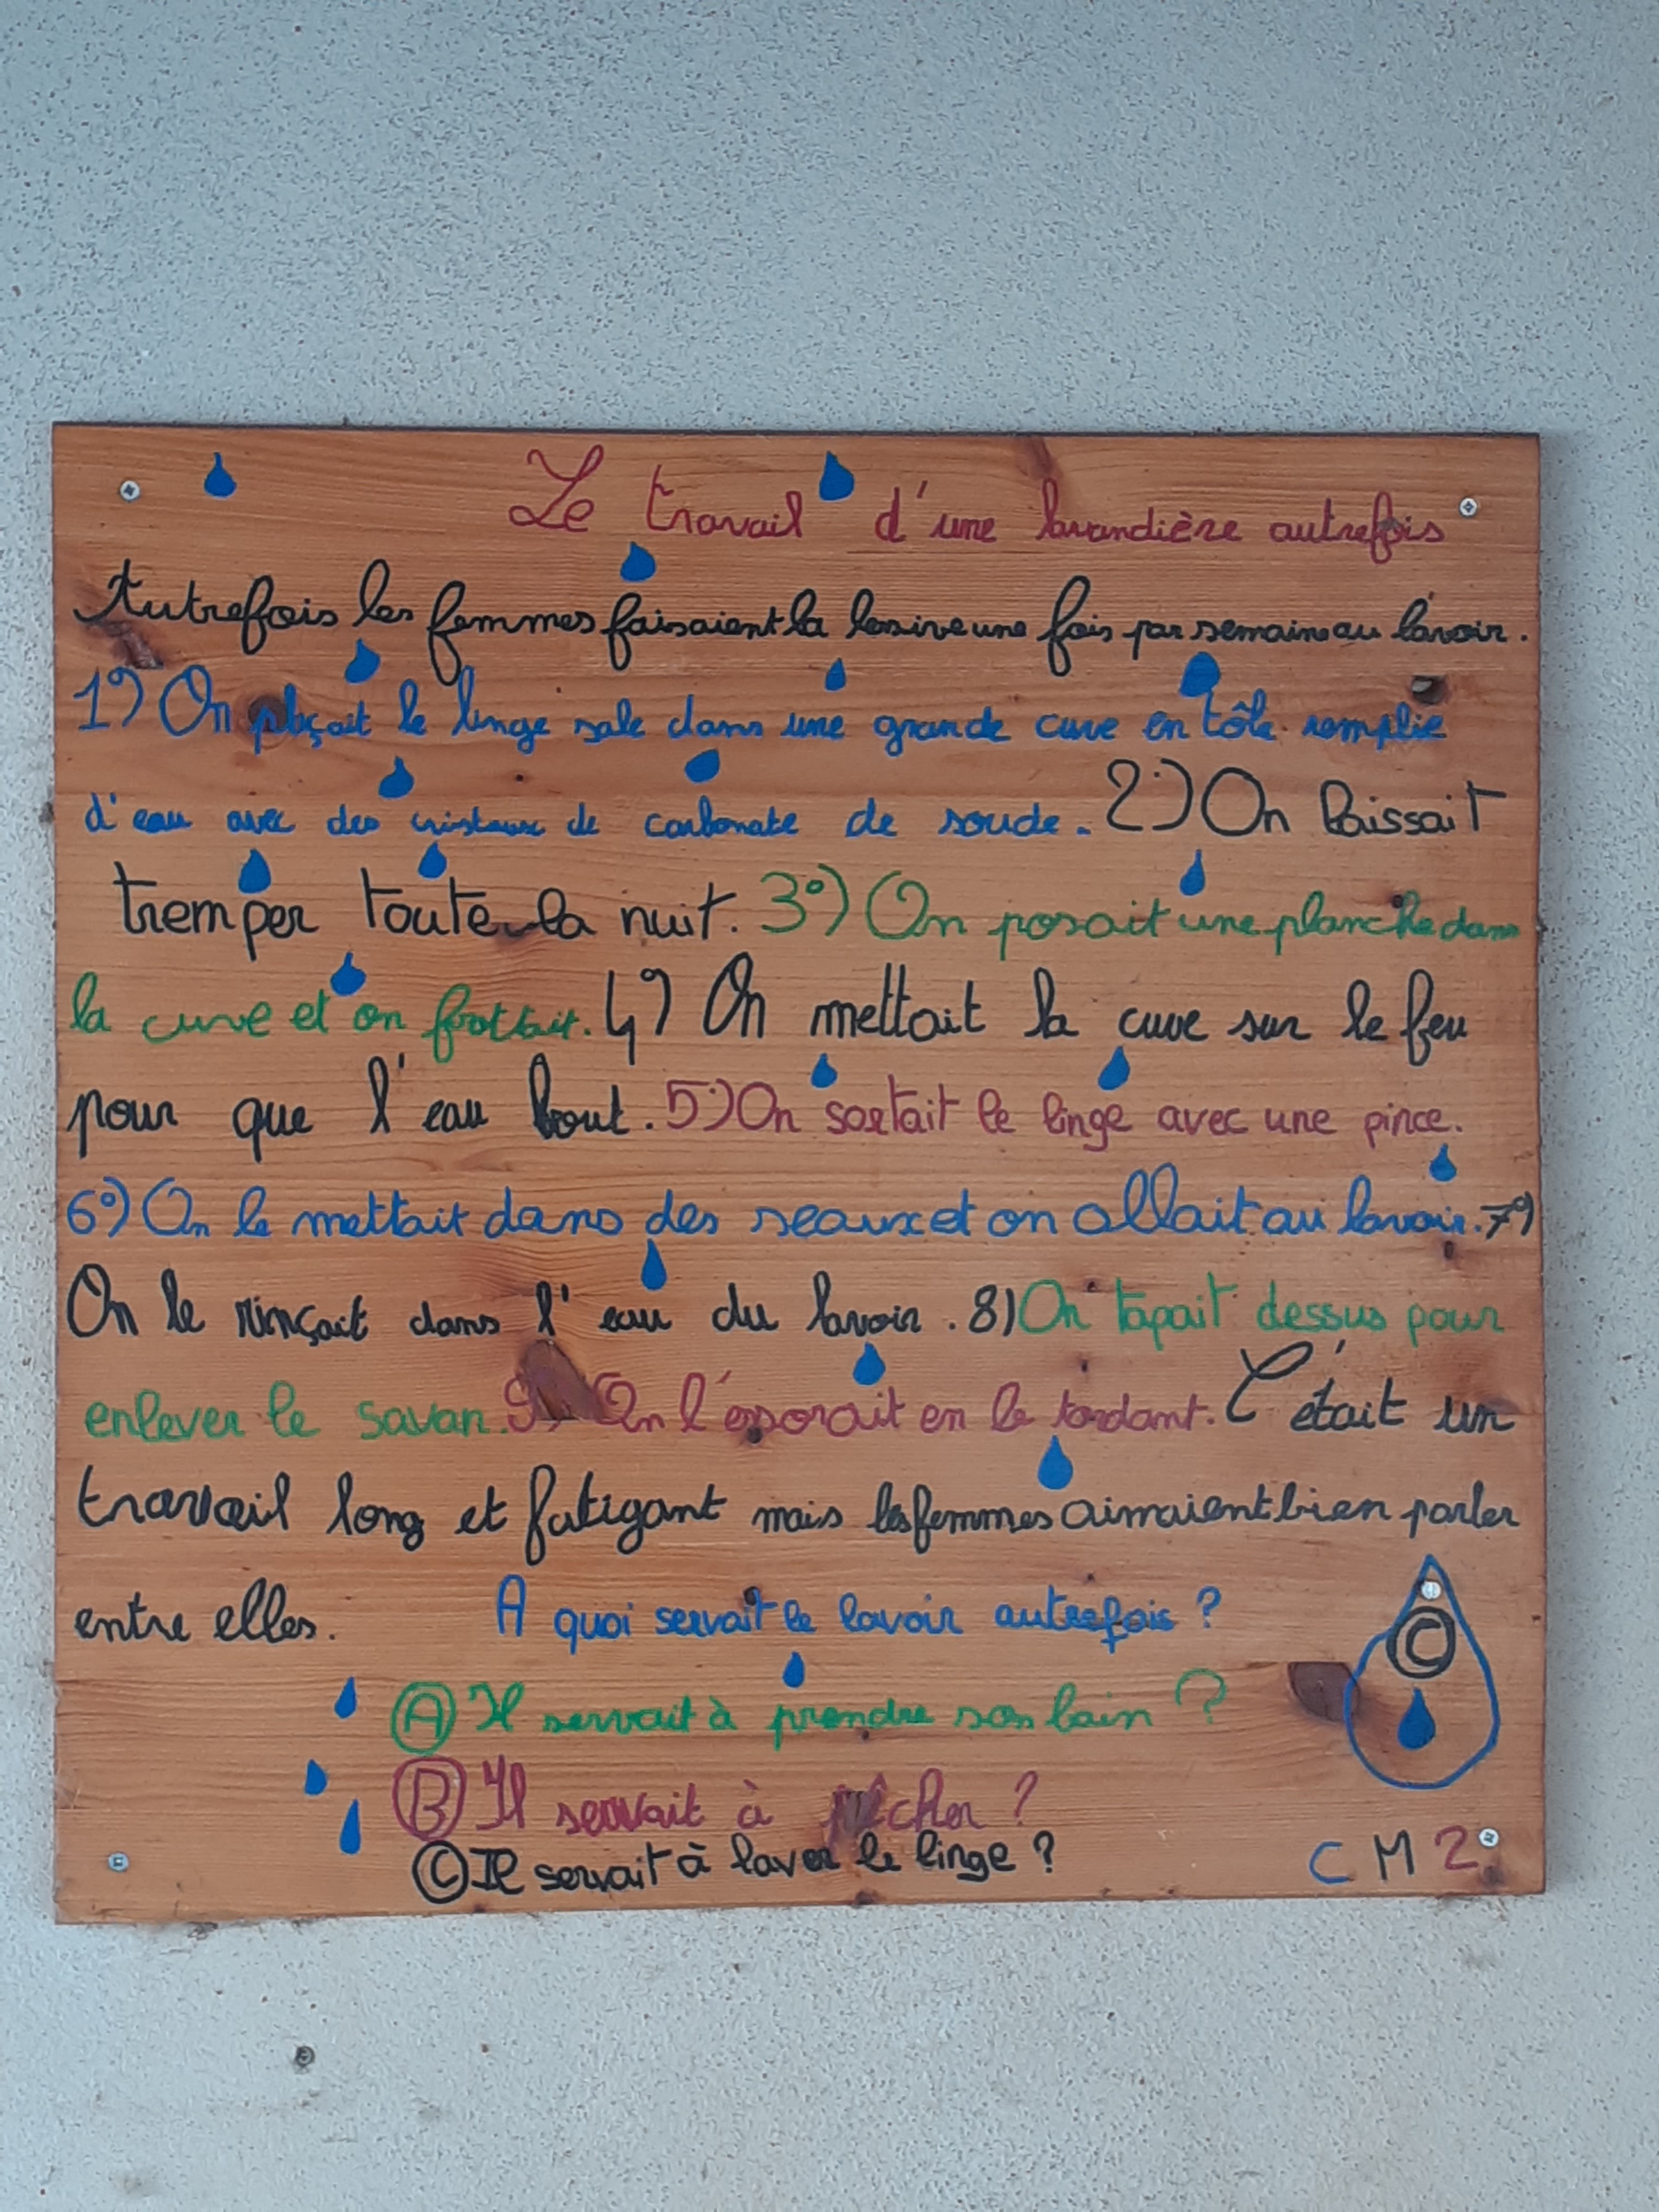 Le travail d'une lavandière autrefois
Autrefois les femmes faisaient la lessive une fois par semaine au lavoir.
1°) On plaçait le linge sale dans une grande cuve en tôle remplie
d'eau avec des cristaux de carbonate de soude. 2°) On laissait
tremper toute la nuit. 3°) On posait une planche dans
la cuve et on frottait. 4°) On mettait la cuve sur le feu
pour que l'eau bout. 5°) On sortait le linge avec une pince.
6°) On le mettait dans des seaux et on allait au lavoir. 7°)
On le rinçait dans l'eau du lavoir. 8) On tapait dessus pour
enlever le savon. 9°) On l'essorait en le tordant. C'était un
travail long et fatigant mais les femmes aimaient bien parler
entre elles. A quoi servait le lavoir autrefois ?
A Il servait à prendre son bain ?
B Il servait à pêcher ?
C Il servait à laver le linge ?
C
CM2